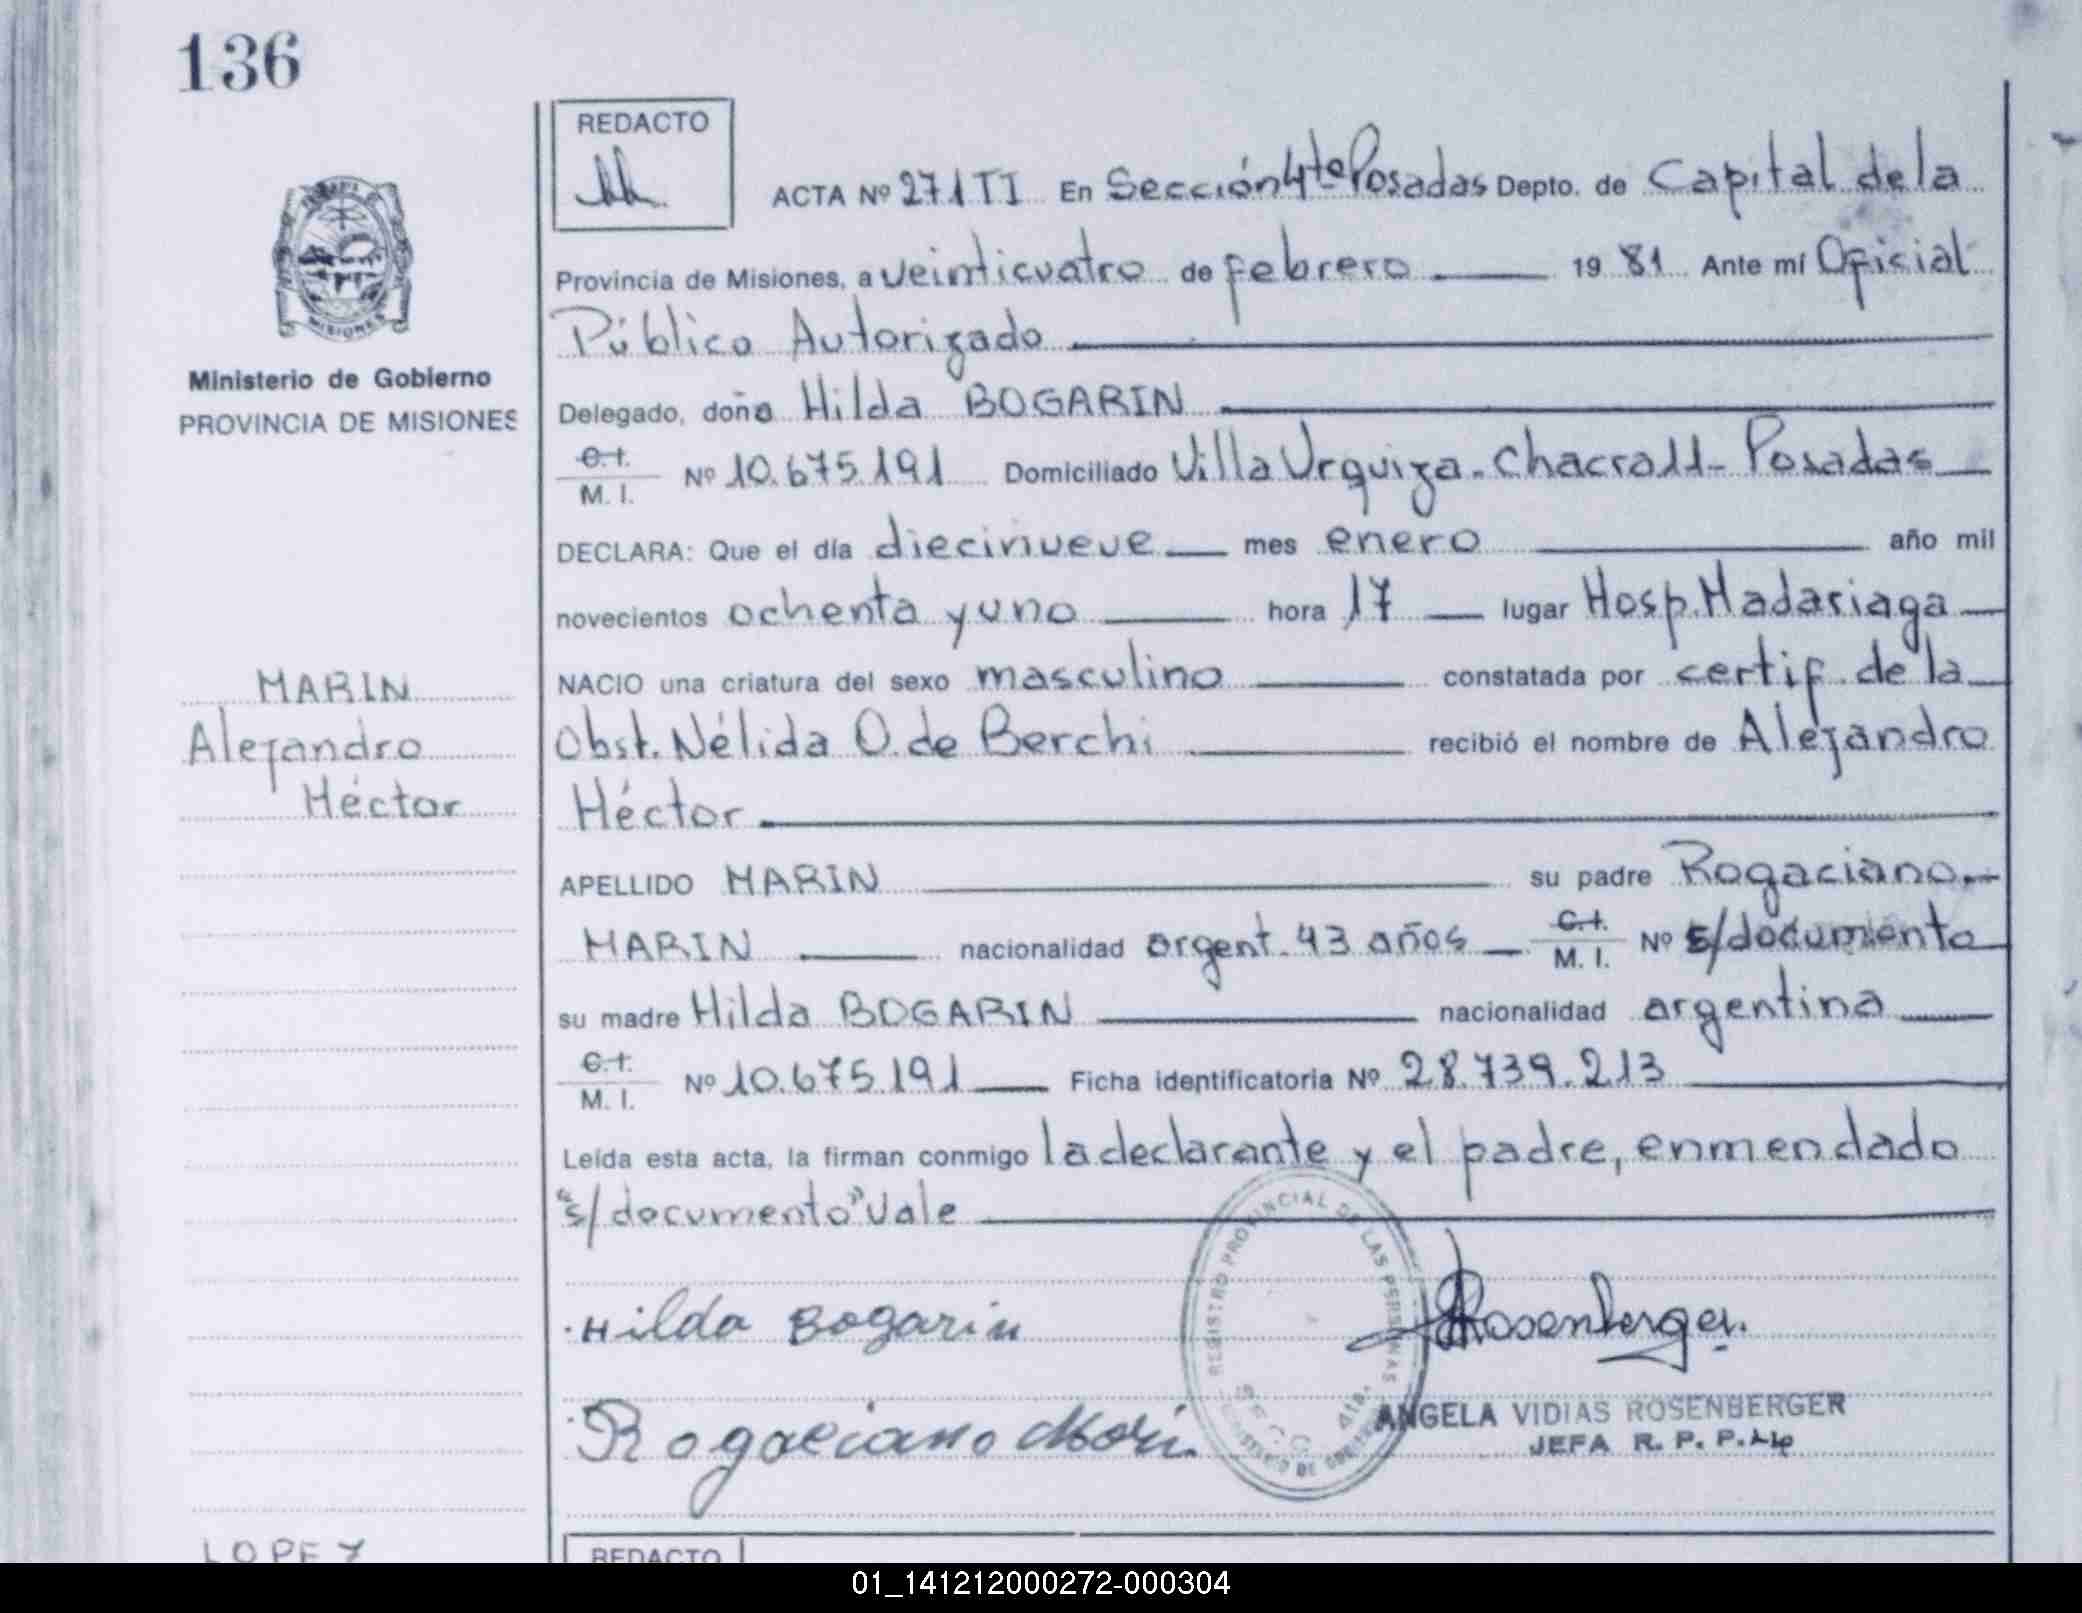 136
REDACTO
ACTA Nº 271 TI En Sección 4ta Posadas Depto. de Capital de la
Provincia de Misiones, a veinticuatro de febrero 19 81 Ante mí Oficial
Público Autorizado
Ministerio de Gobierno
PROVINCIA DE MISIONES
Delegado, doña Hilda BOGARIN
C.I.
M. I. Nº 10.675.191 Domiciliado Villa Urquiza. Chacra 11 - Posadas
DECLARA: Que el día diecinueve mes enero año mil
novecientos ochenta y uno hora 17 lugar Hosp. Madariaga
MARIN
Alejandro
Héctor
NACIO una criatura del sexo masculino constatada por certif. de la
Obst. Nélida O. de Berchi recibió el nombre de Alejandro
Héctor
APELLIDO MARIN su padre Rogaciano
MARIN nacionalidad argent. 43 años C.I. M. I. Nº s/documento
su madre Hilda BOGARIN nacionalidad argentina
C.I.
M. I. Nº 10.675.191 Ficha identificatoria Nº 28.739.213
Leída esta acta, la firman conmigo la declarante y el padre, enmendado
"s/documento" vale
REGISTRO PROVINCIAL DE LAS PERSONAS
Hilda Bogarin
Rosenberger
Rogaciano Mari
ANGELA VIDIAS ROSENBERGER
JEFA R. P. P.
LOPEZ
REDACTO
01_141212000272-000304